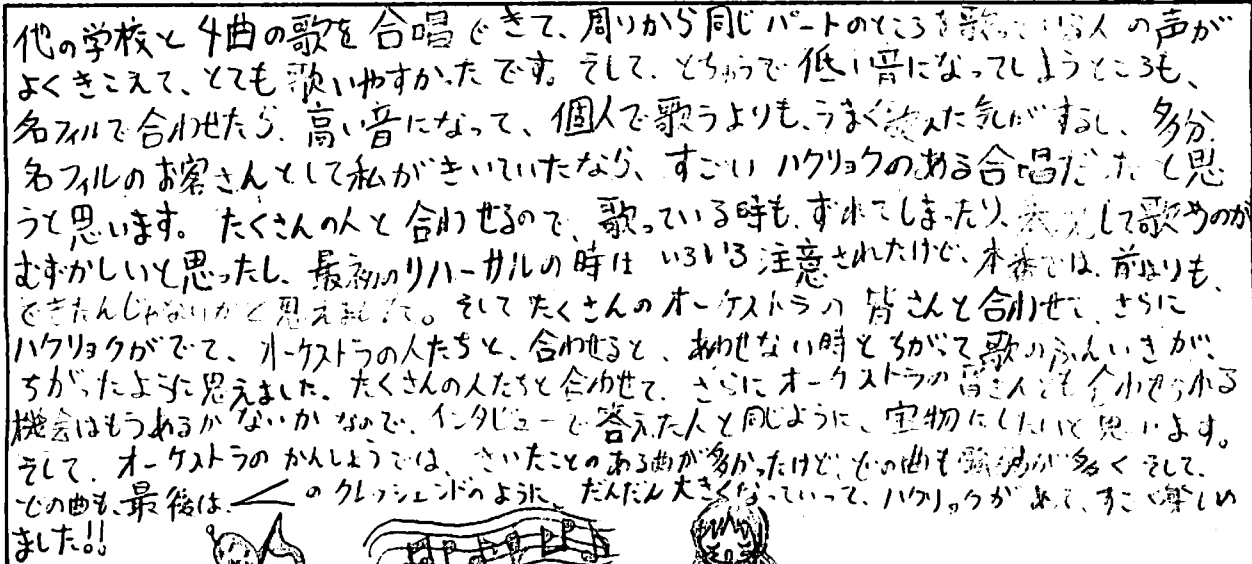 他の学校と4曲の歌を合唱できて、周りから同じパートのところを歌っている人の声が
よくきこえて、とても歌いやすかったです。そして、とちゅうで低い音になってしまうところも、
名フィルで合わせたら、高い音になって、個人で歌うよりも、うまく歌えた気がするし、多分
名フィルのお客さんとして私がきいていたなら、すごいハクリョクのある合唱だったと思
うと思います。たくさんの人と合わせるので、歌っている時も、ずれてしまったり、表現して歌うのが
むずかしいと思ったし、最初のリハーサルの時はいろいろ注意されたけど、本番では、前よりも、
できたんじゃないかと思えました。そしてたくさんのオーケストラの皆さんと合わせて、さらに
ハクリョクがでて、オーケストラの人たちと、合わせると、あわせない時とちがって歌のふんいきが、
ちがったように思えました。たくさんの人たちと合わせて、さらにオーケストラの皆さんとも合わせられる
機会はもうあるかないかなので、インタビューで答えた人と同じように、宝物にしたいと思います。
そして、オーケストラのかんしょうでは、きいたことのある曲が多かったけど、どの曲も が多く そして、
どの曲も、最後は、のクレッシェンドのように、だんだん大きくなっていって、ハクリョクがあって、すごく楽しめ
ました!!